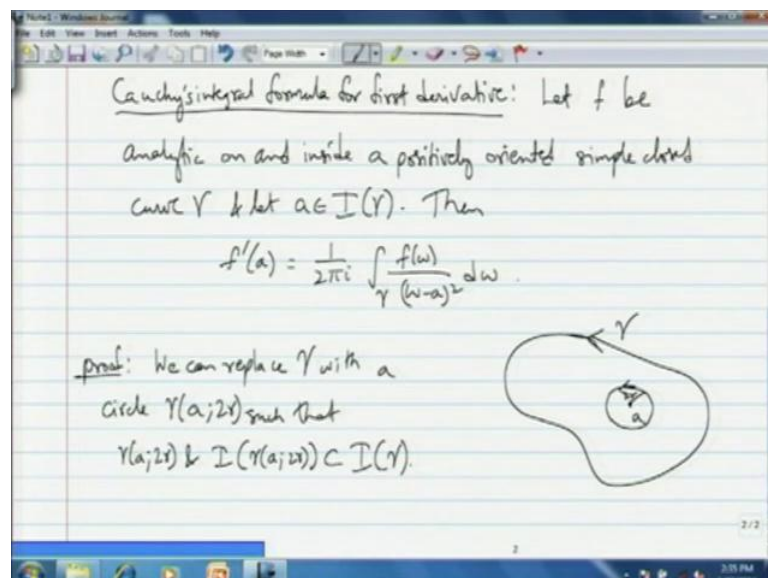 Note1 - Windows Journal
File Edit View Insert Actions Tools Help
Page Width
Cauchy's integral formula for first derivative: Let f be
analytic on and inside a positively oriented simple closed
curve γ & let a ∈ I(γ). Then
f'(a) = 1/2πi ∫_γ f(w)/(w-a)² dw.
proof: We can replace γ with a
circle γ(a;2r) such that
γ(a;2r) & I(γ(a;2r)) ⊂ I(γ).
γ
2r
a
2/2
2
2:35 PM